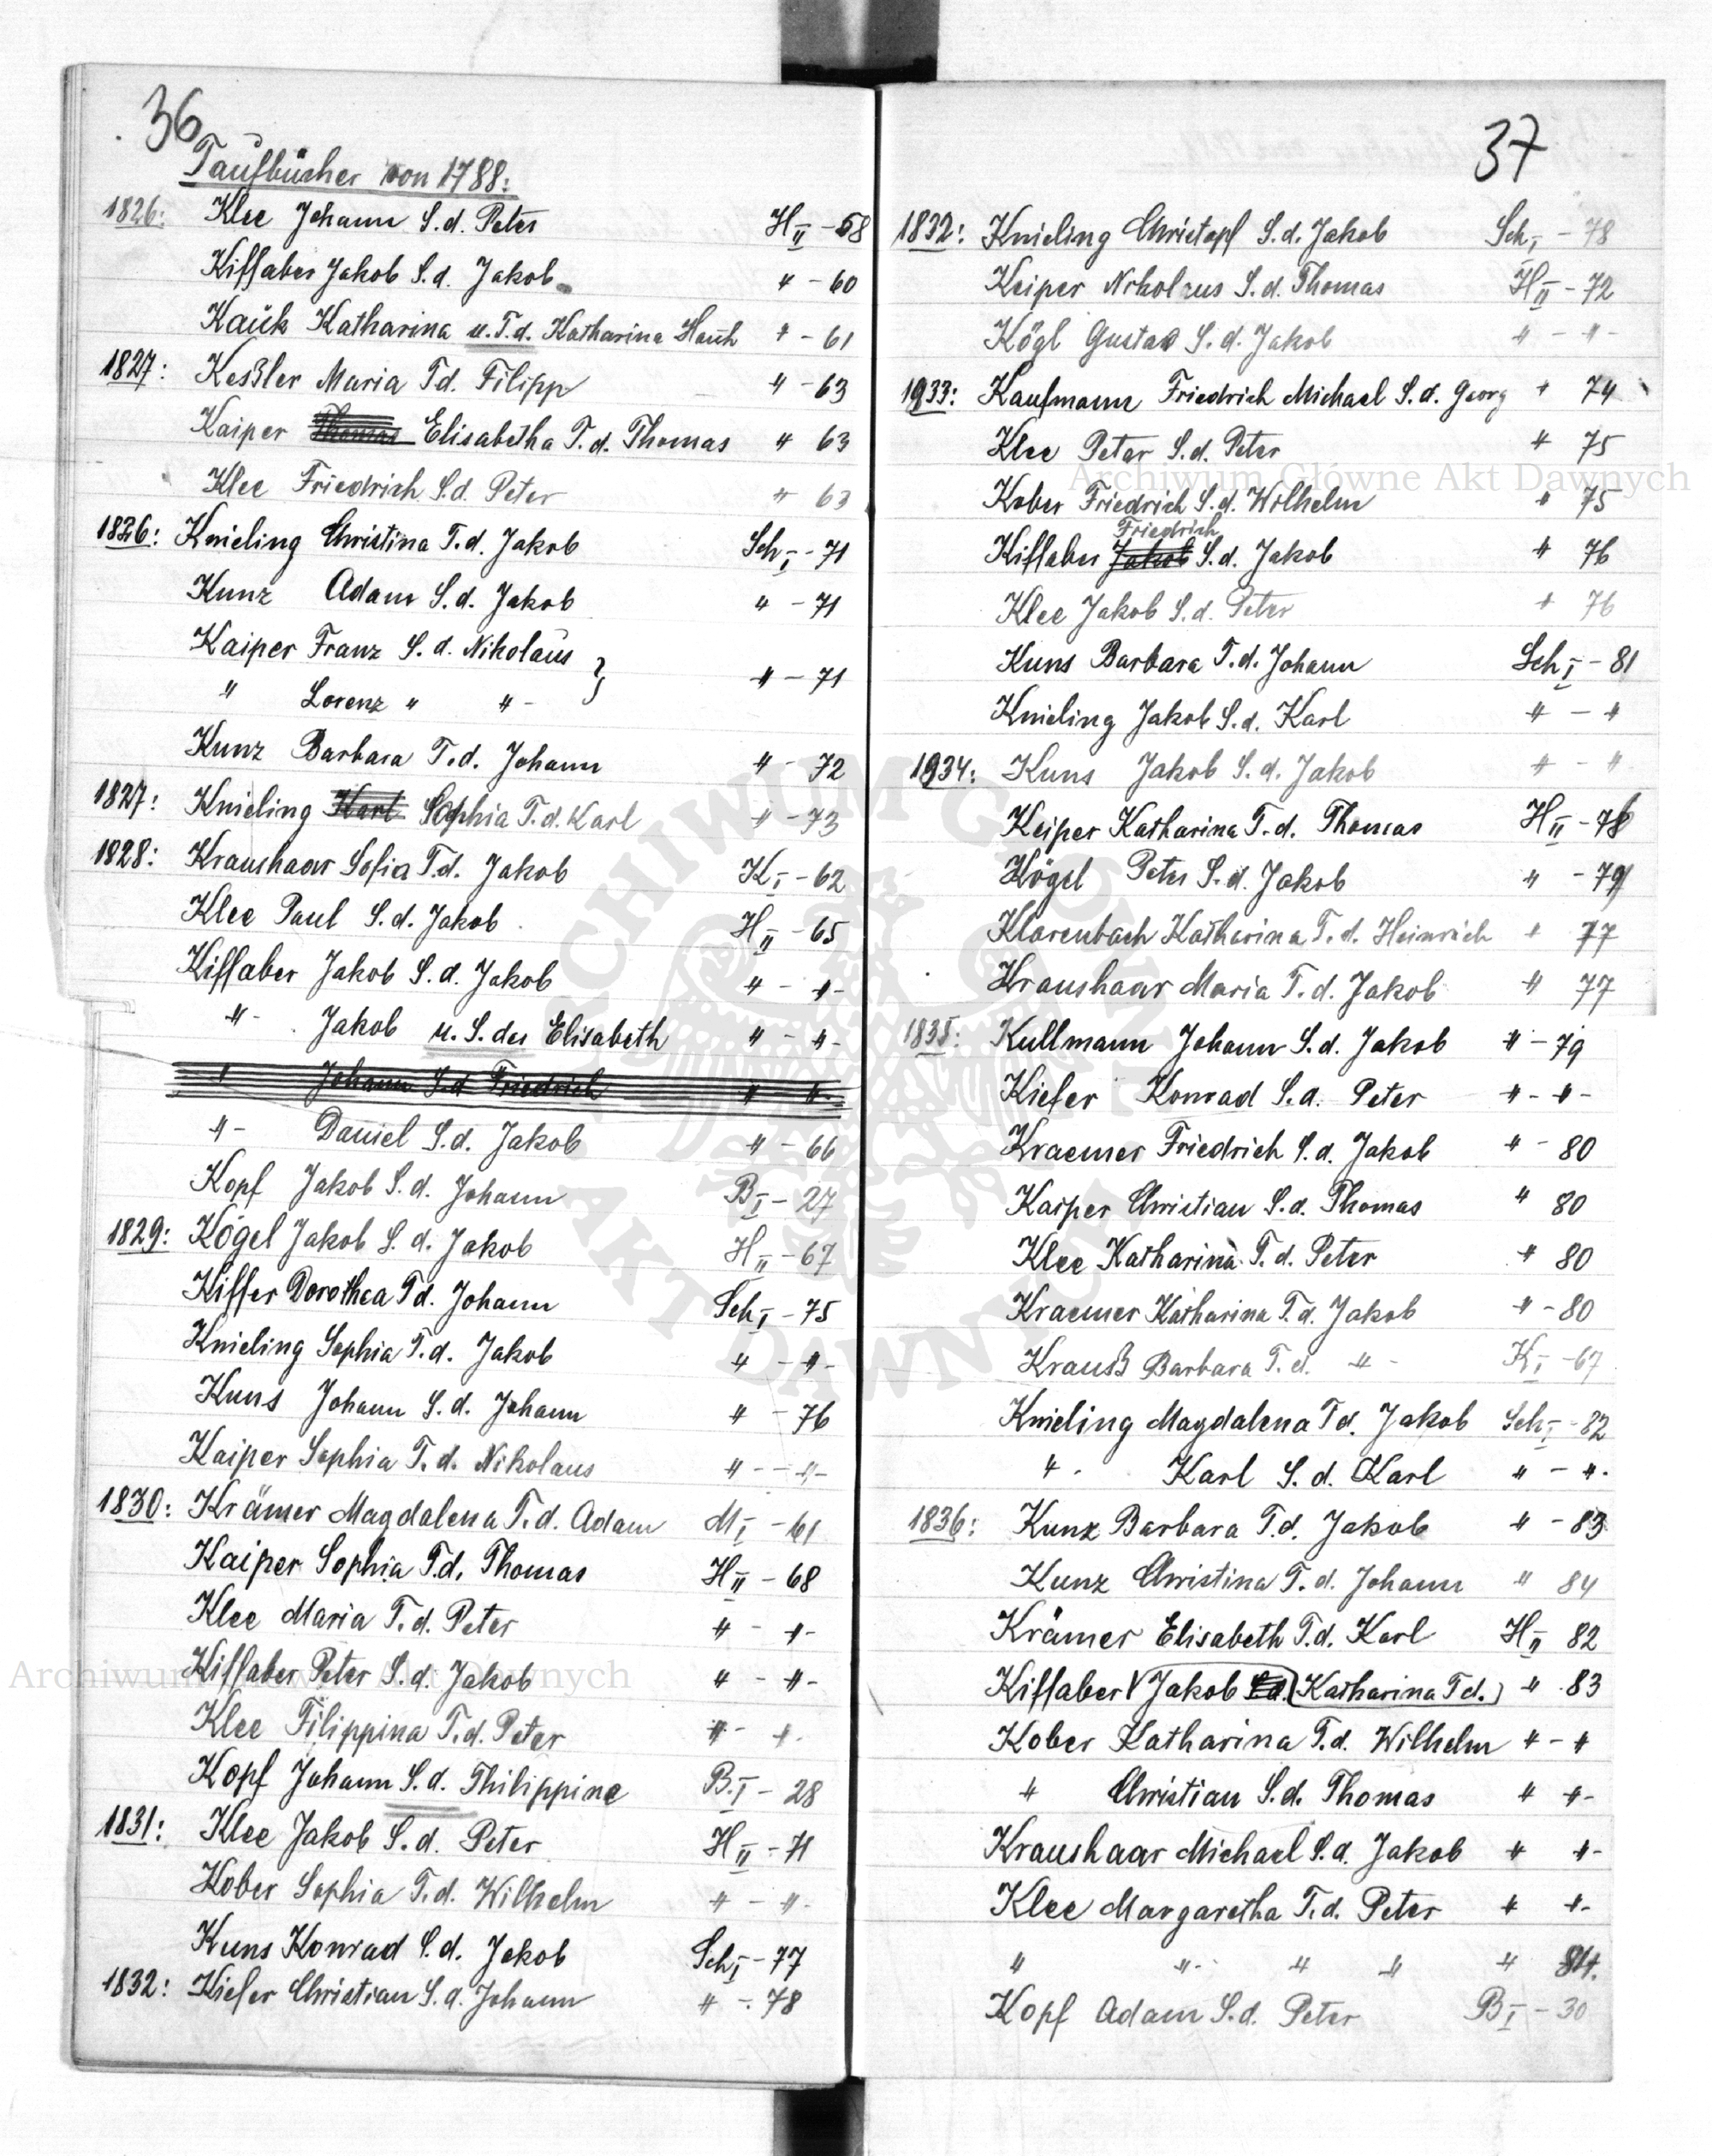 36
Taufbücher von 1788:
1826: Klee Johann S.d. Peter H II - 58
Kiffaber Jakob S.d. Jakob " - 60
Kaük Katharina u.T.d. Katharina " - 61
1827: Keßler Maria T.d. Filipp " - 63
Kaiper Thomas Elisabetha T.d. Thomas " 63
Klee Friedrich S.d. Peter " 63
1826: Knieling Christina T.d. Jakob Sch I - 71
Kunz Adam S.d. Jakob " - 71
Kaiper Franz S.d. Nikolaus }
" Lorenz " " - } " - 71
Kunz Barbara T.d. Johann " - 72
1827: Knieling Karl Sophia T.d. Karl " - 73
1828: Kraushaar Sofia T.d. Jakob K I - 62
Klee Paul S.d. Jakob H II - 65
Kiffaber Jakob S.d. Jakob " - " -
" - Jakob u.S. der Elisabeth " - " -
" Johann S.d. Friedrich " - " -
" - Daniel S.d. Jakob " - 66
Kopf Jakob S.d. Johann B I - 27
1829: Kögel Jakob S.d. Jakob H II - 67
Kiffer Dorothea T.d. Johann Sch I - 75
Knieling Sophia T.d. Jakob " - " -
Kuns Johann S.d. Johann " - 76
Kaiper Sophia T.d. Nikolaus " - " -
1830: Krämer Magdalena T.d. Adam M I - 61
Kaiper Sophia T.d. Thomas H II - 68
Klee Maria T.d. Peter " - " -
Kiffaber Peter S.d. Jakob " - " -
Klee Filippina T.d. Peter " - " -
Kopf Johann S.d. Philippine B. I - 28
1831: Klee Jakob S.d. Peter H II - 71
Kober Sophia T.d. Wilhelm " - " -
Kuns Konrad S.d. Jakob Sch I - 77
1832: Kiefer Christian S.d. Johann " - 78
37
1832: Knieling Christopf S.d. Jakob Sch I - 78
Keiper Nikolaus S.d. Thomas H II - 72
Kögl Gustav S.d. Jakob " - " -
1933: Kaufmann Friedrich Michael S.d. Georg " 74
Klee Peter S.d. Peter " 75
Kober Friedrich S.d. Wilhelm " 75
Friedrich
Kiffaber Jakob S.d. Jakob " 76
Klee Jakob S.d. Peter " 76
Kuns Barbara T.d. Johann Sch I - 81
Knieling Jakob S.d. Karl " - "
1934: Kuns Jakob S.d. Jakob " - "
Keiper Katharina T.d. Thomas H II - 78
Kögel Peter S.d. Jakob " - 79
Klarenbach Katharina T.d. Heinrich " 77
Kraushaar Maria T.d. Jakob " 77
1835: Kullmann Johann S.d. Jakob " - 79
Kiefer Konrad S.d. Peter " - " -
Kraemer Friedrich S.d. Jakob " - 80
Kaiper Christian S.d. Thomas " 80
Klee Katharina T.d. Peter " 80
Kraemer Katharina T.d. Jakob " - 80
Krauß Barbara T.d. " - K I - 67
Knieling Magdalena T.d. Jakob Sch I - 82
" - Karl S.d. Karl " - " -
1836: Kunz Barbara T.d. Jakob " - 83
Kunz Christina T.d. Johann " 84
Krämer Elisabeth T.d. Karl H II 82
Kiffaber Jakob S.d. (Katharina T.d.) " 83
Kober Katharina T.d. Wilhelm " - "
" Christian S.d. Thomas " " -
Kraushaar Michael S.d. Jakob " " -
Klee Margaretha T.d. Peter " " -
" " - " " " 84.
Kopf Adam S.d. Peter B I - 30
Archiwum Główne Akt Dawnych
ARCHIWUM GŁÓWNE AKT DAWNYCH